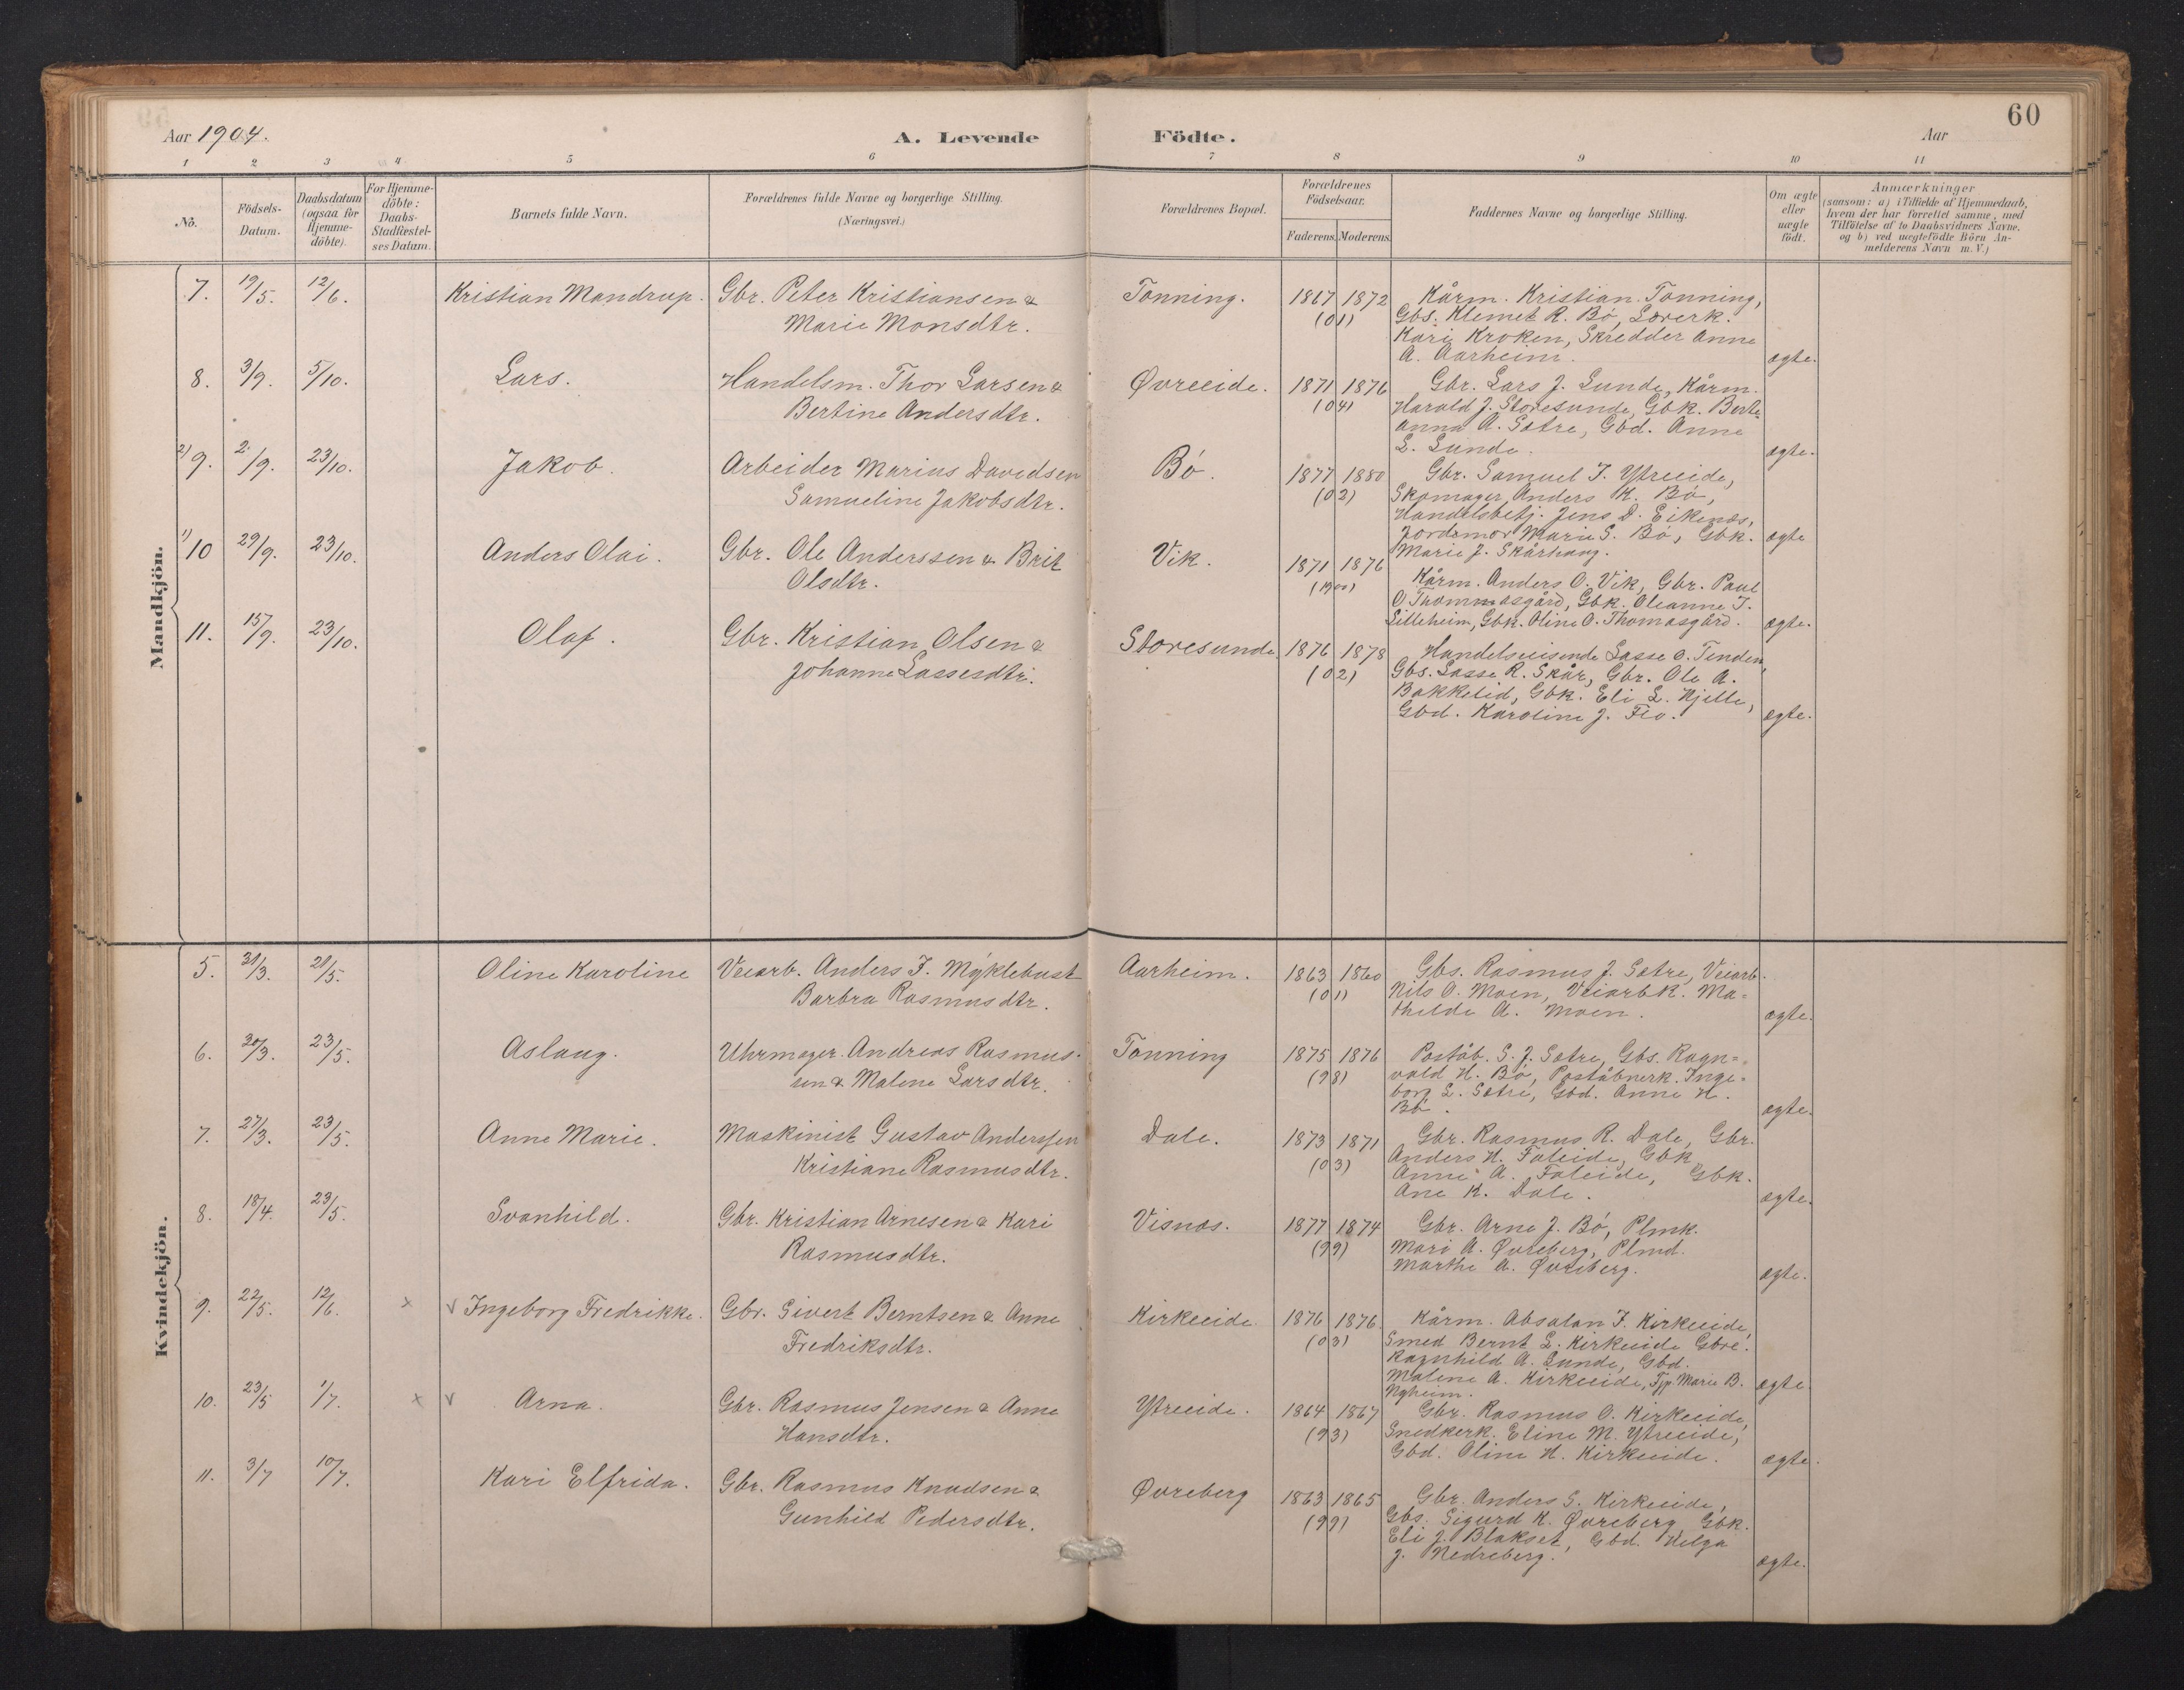 60
Aar 1904.
A. Levende Födte.
Aar
1 2 3 4 5 6 7 8 9 10 11
No.
Födsels-Datum.
Daabsdatum (ogsaa for Hjemme-döbte).
For Hjemme-döbte: Daabs-Stadfæstel-ses Datum.
Barnets fulde Navn.
Forældrenes fulde Navne og borgerlige Stilling.
(Næringsvei.)
Forældrenes Bopæl.
Forældrenes Födselsaar.
Faderens. Moderens.
Faddernes Navne og borgerlige Stilling.
Om ægte eller uægte födt.
Anmærkninger
(saasom: a) i Tilfælde af Hjemmedaab,
hvem der har forrettet samme, med
Tilföielse af to Daabsvidners Navne.
og b) ved uægtefödte Börn An-
melderens Navn m. V.)
Mandkjön.
7. 19/5. 12/6. Kristian Mandrup. Gbr. Peter Kristiansen & Tonning. 1867 1872 Kårm. Kristian Tonning,
Marie Monsdtr. (01) Gbs. Klemet R. Bö, Lærerk.
Kari Kroken, Skredder Anne
A. Aarheim. ægte.
8. 3/9. 5/10. Lars. Handelsm. Thor Larsen & Øvreeide. 1871 1876 Gbr. Lars J. Lunde, Kårm.
Bertine Andersdtr. (04) Harald J. Storesunde, Gbk. Berte
anna A. Sætre, Gbd. Anne
L. Lunde. ægte.
2) 9. 2/9. 23/10. Jakob. Arbeider Marius Davidsen Bö. 1877 1880 Gbr. Samuel J. Ytreeide,
Samueline Jakobsdtr. (02) Skomager Anders K. Bö,
Handelsbetj. Jens D. Eikenæs,
Jordemor Marie S. Bö, Gbk. ægte
Marie J. Skårhaug.
1) 10 29/9. 23/10. Anders Olai. Gbr. Ole Anderssen & Brit Vik. 1871 1876
Olsdtr. (1900) Kårm. Anders O. Vik, Gbr. Paul
O. Thommasgård, Gbk. Oleanne J.
Lilleheim, Gbk. Oline O. Thomasgård. ægte.
11. 15/9. 23/10. Olaf. Gbr. Kristian Olsen & Storesunde. 1876 1878 Handelsreisende Lasse O. Tenden,
Johanne Lassesdtr. (02) Gbs. Lasse R. Skår, Gbr. Ole A.
Bakkelid, Gbk. Eli L. Hjelle,
Gbd. Karoline J. Flo. ægte.
Kvindekjön.
5. 31/3. 21/5. Oline Karoline Veiarb. Anders J. Myklebust Aarheim. 1863 1860 Gbs. Rasmus J. Sætre, Veiarb.
Barbra Rasmusdtr. (01) Nils O. Moen, Veiarbk. Ma-
thilde A. Moen. ægte.
6. 20/3. 23/5. Aslaug. Uhrmager Andreas Rasmus- Tonning 1875 1876 Poståb. S. J. Sætre, Gbs. Ragn-
sen & Malene Larsdtr. (98) vald H. Bö, Poståbnerk. Inge-
borg L. Sætre, Gbd. Anne H.
Bö. ægte.
7. 27/3. 23/5. Anne Marie. Maskinist Gustav Anderssen Dale. 1873 1871 Gbr. Rasmus R. Dale, Gbr.
Kristiane Rasmusdtr. (03) Anders H. Faleide, Gbk.
Anne A. Faleide, Gbk.
Ane K. Dale. ægte.
8. 18/4. 23/5. Svanhild. Gbr. Kristian Arnesen & Kari Visnæs. 1877 1874 Gbr. Arne J. Bö, Plmk.
Rasmusdtr. (99) Mari A. Øvreberg, Plmd.
Marthe A. Øvreberg. ægte.
9. 22/5. 12/6. x v Ingeborg Fredrikke. Gbr. Sivert Berntsen & Anne Kirkeeide 1876 1876 Kårm. Absalon J. Kirkeeide,
Fredriksdtr. (03) Smed Bernt L. Kirkeeide Gbre.
Ragnhild A. Lunde, Gbd.
Malene A. Kirkeeide, Tjp. Marie B. ægte.
Nyheim.
10. 23/5 1/7. x v Arna. Gbr. Rasmus Jensen & Anne Ytreeide. 1864 1867 Gbr. Rasmus O. Kirkeeide,
Hansdtr. (93) Snedkerk. Eline M. Ytreeide,
Gbd. Oline H. Kirkeeide. ægte.
11. 3/7 10/7. Kari Elfrida. Gbr. Rasmus Knudsen & Øvreberg 1863 1865 Gbr. Anders S. Kirkeeide,
Gunhild Pedersdtr. (99) Gbs. Sigurd K. Øvreberg Gbk.
Eli J. Blakset, Gbd. Helga
J. Nedreberg. ægte.